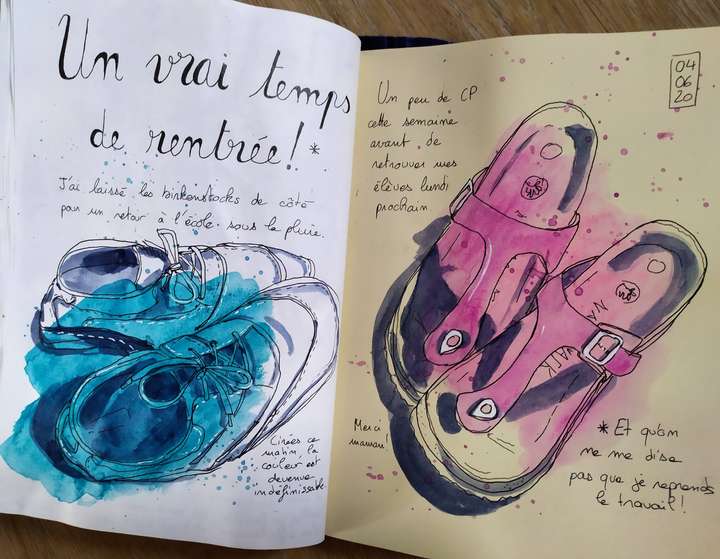 Un vrai temps
de rentrée! *
J'ai laissé les birkenstocks de côté
pour un retour à l'école sous la pluie.
Cirées ce
matin, la
couleur est
devenue
indéfinissable.
04
06
20
Un peu de CP
cette semaine
avant de
retrouver mes
élèves lundi
prochain
Merci
maman.
* Et qu'on
ne me dise
pas que je reprends
le travail!